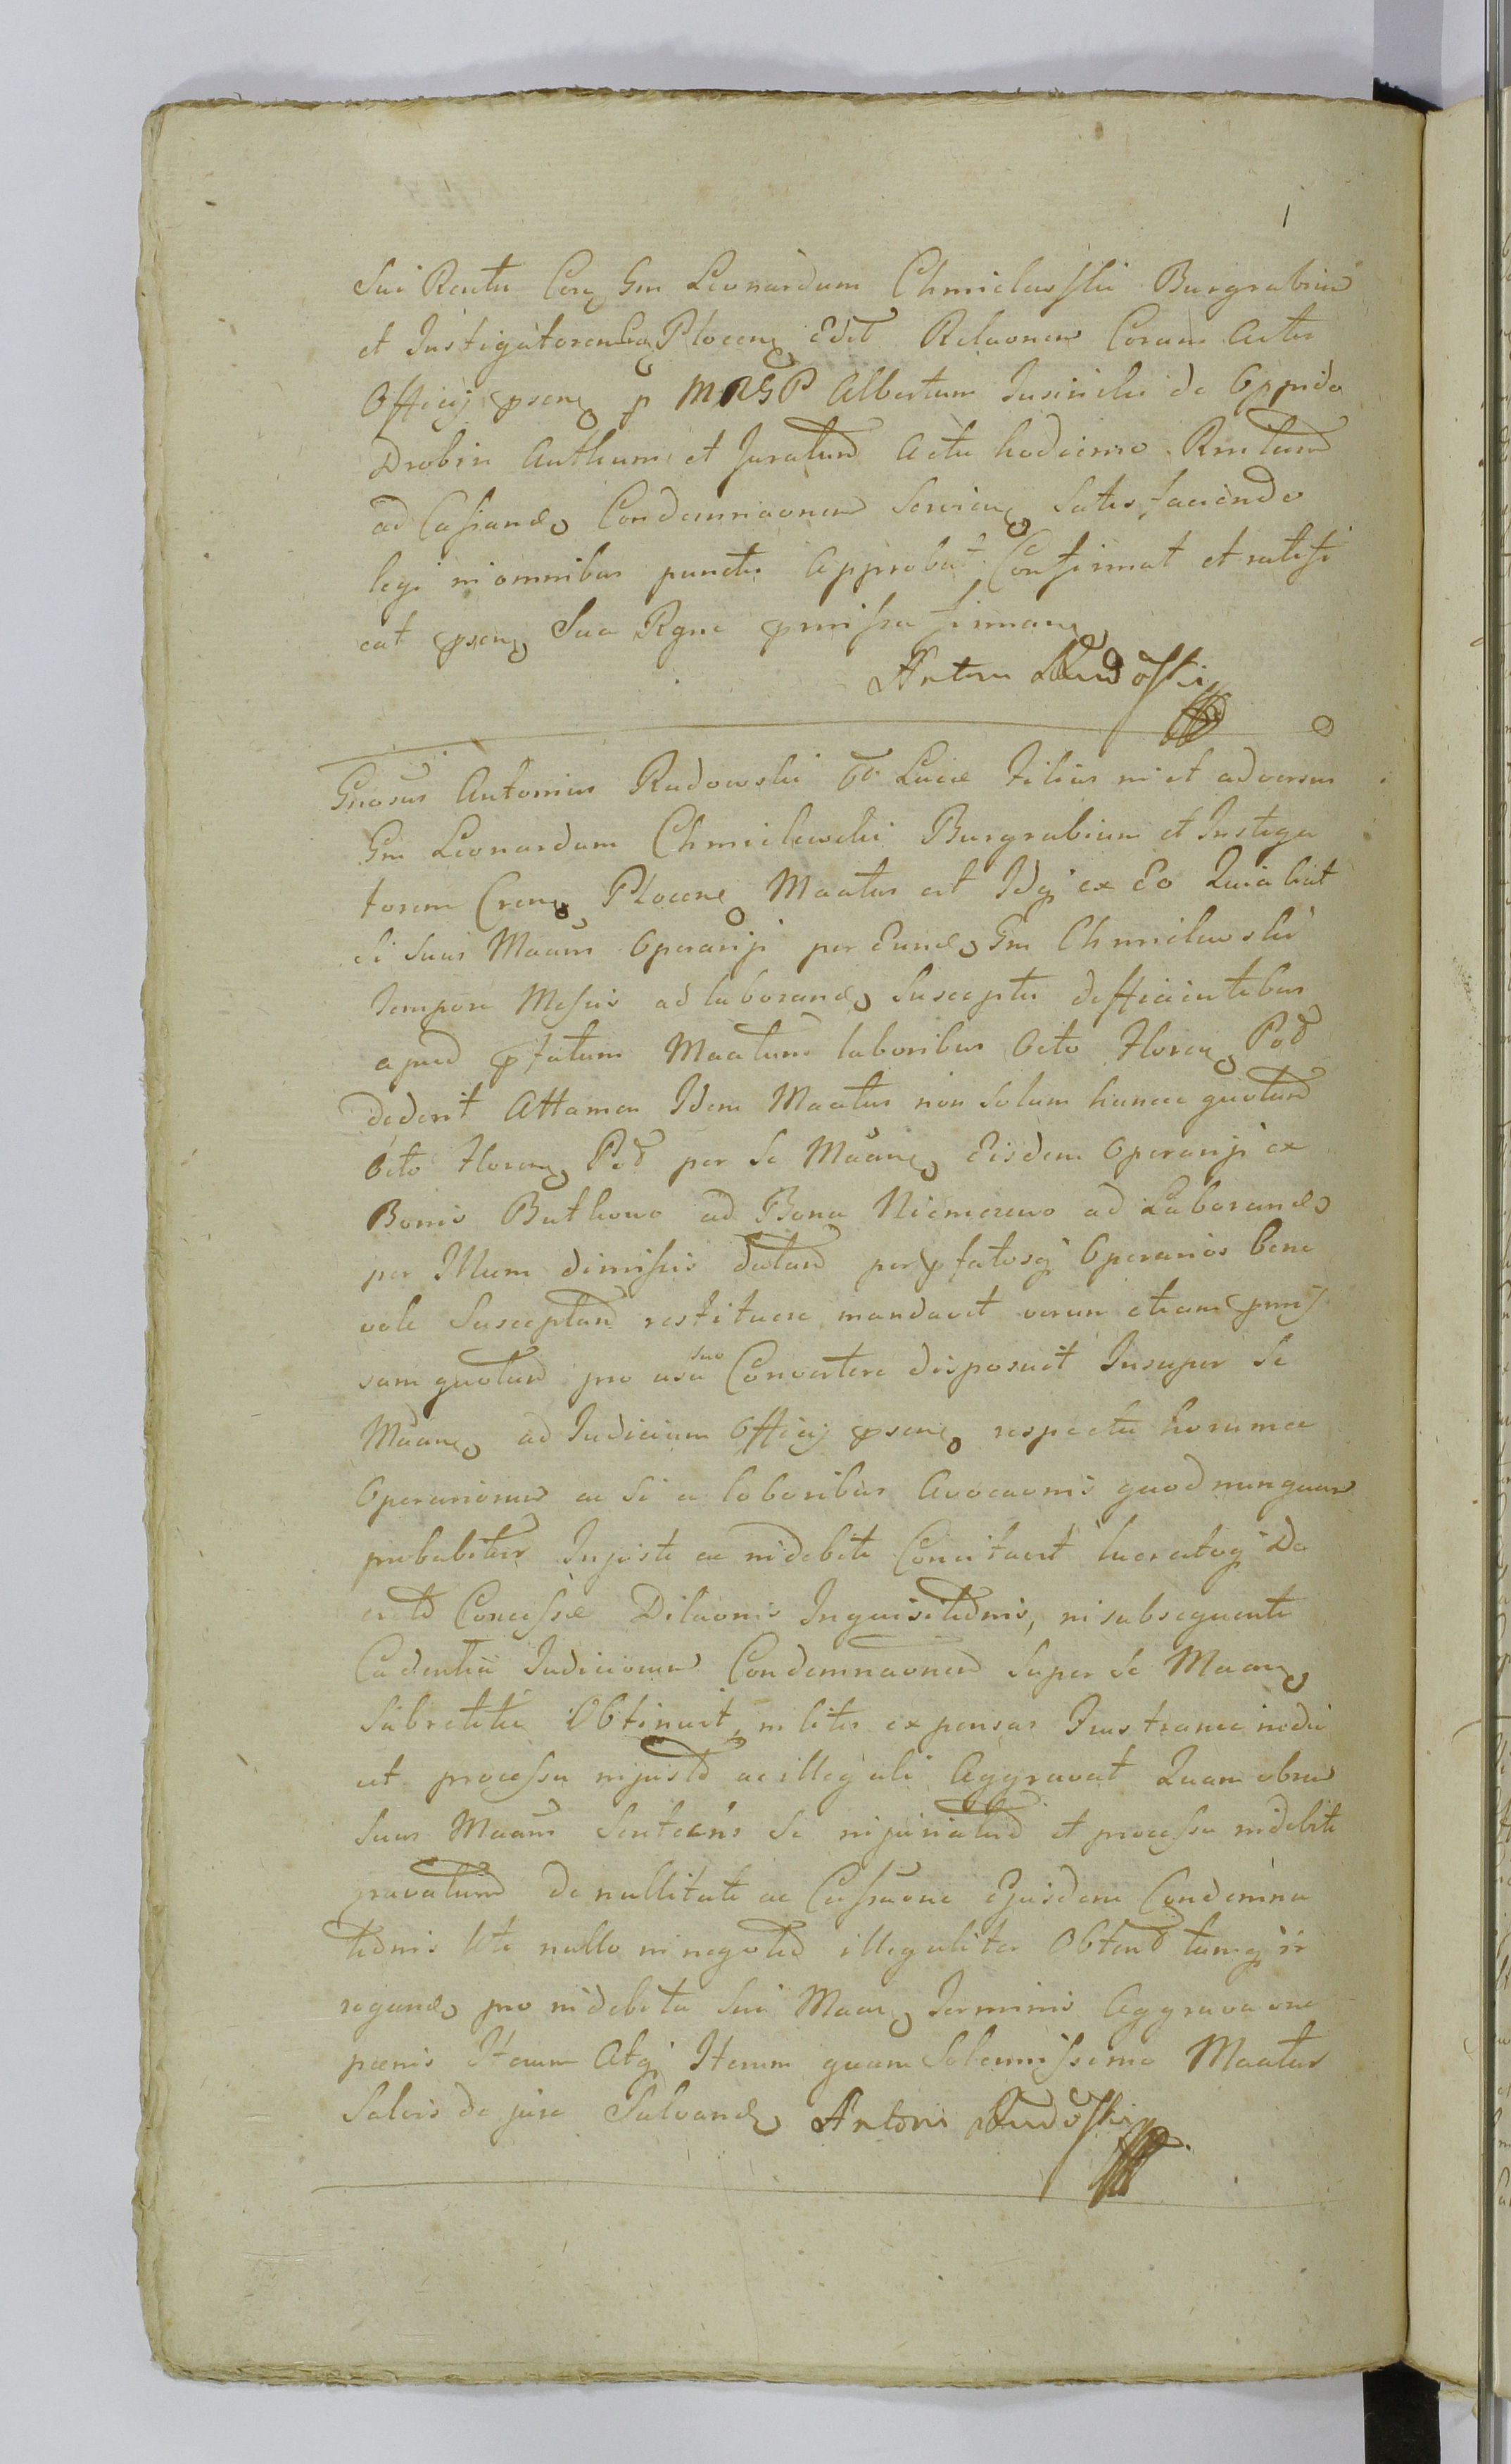 Sui Rentu Coną Gm Leonardum Chmielewski Burgrabium
et Instigatorem Plocen Edit Relaonem Coram Actis
Officij psen p MRGP Albertum Jusinski de Oppido
Drobin Authum et Juratum Actu hodierno Rnitum
ad Cassand Condemnaonem Servien Satisfaciendo
legi in omnibus punctis Approbat Confirmat et ratifi
cat psen Sua Rgne pmissa firman
Antoni Rudoski
Gnosus Antonius Rudowski Luciae filius in et adversus
Gm Leonardum Chmielewski Burgrabium et Instiga
torem Cren Plocen Maatus est Idq ex Eo Quia licet
Ei Suus Maans Operarijs per Eund Gm Chmielewski
tempore Messis ad laborand Susceptis defficientibus
apud pfatum Maatum laboribus Octo floren Pol
dederit Attamen Idem Maatus non Solum hancce quotam
Octo floren Pol per Se Maan Eisdem Operarijs ex
Bonis Buthowo ad Bona Niemczewo ad Laborand
per Illum dimissis datam per pfatosq Operarios bene
vole Susceptam restituere mandavit verum etiam pmis
sam quotam pro usu suo Convertere disposuit Insuper Se
Maan ad Judicium Officij psen respectu horumce
Operariorum ac Si a laboribus Avocaonis quod nunquam
probabitur Injuste ac indebite Concitavit lucratoq De
creto Concessae Dilaonis Inquisitionis, in subsequenti
Cadentia Judiciorum Condemnaonem Super Se Maan
Subrepticie Obtinuit, in litis expensas frustranee induit
et processu injusto ac illegali Aggravat Quam obrem
Suus Maans Sentiens Se injuriatum et processu indebite
gravatum de nullitate ac Cassaone Ejusdem Condemna
tionis Uti nullo in negotio illegaliter Obtent tumq ir
rogand pro indebita Sui Maan Terminis Aggravaone
paenis Iterum Atq Iterum quam Solennissime Maatur
Salvis de jure Salvand Antoni Rudoski